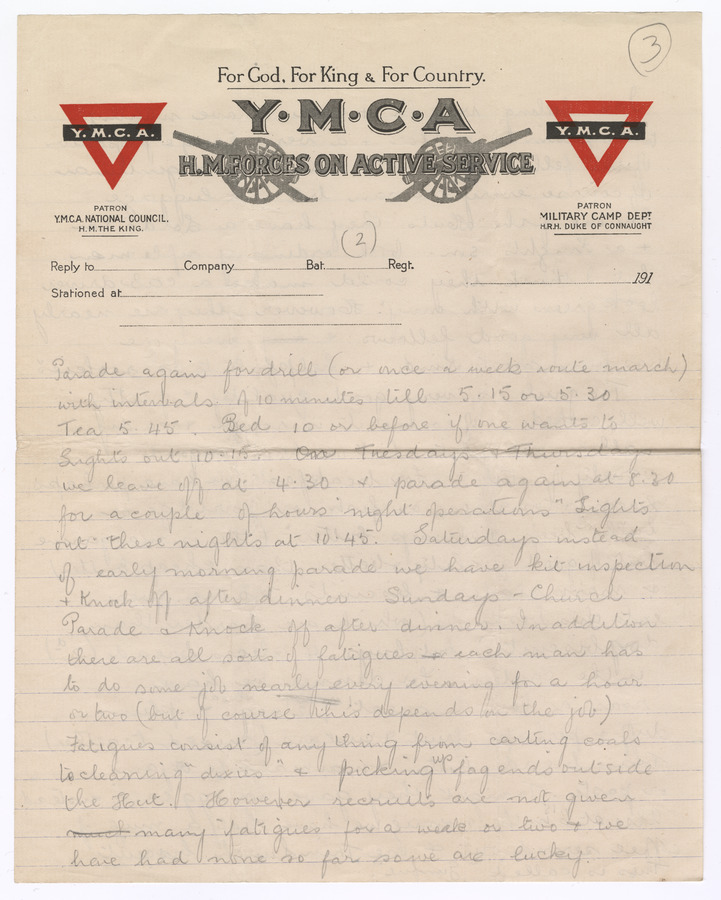 3
For God, For King & For Country.
Y·M·C·A
Y.M.C.A.
Y.M.C.A.
H.M. FORCES ON ACTIVE SERVICE
PATRON
Y.M.C.A. NATIONAL COUNCIL.
H.M. THE KING.
PATRON
MILITARY CAMP DEPT
H.R.H. DUKE OF CONNAUGHT
(2)
Reply to Company Bat. Regt.
191
Stationed at
Parade again for drill (or once a week route march)
with intervals of 10 minutes till 5.15 or 5.30
Tea 5.45. Bed 10 or before if one wants to
Lights out 10.15. On Tuesdays & Thursdays
we leave off at 4.30 & parade again at 8.30
for a couple of hours "night operations" Lights
out these nights at 10.45. Saturdays instead
of early morning parade we have kit inspection
& Knock off after dinner Sundays - Church
Parade & Knock off after dinner. In addition
there are all sorts of fatigues & each man has
to do some job nearly every evening for a hour
or two (but of course this depends on the job)
Fatigues consist of any thing from carting coals
to cleaning "dixies" & picking up fag ends outside
the Hut. However recruits are not given
much many "fatigues" for a week or two & we
have had none so far so we are lucky.